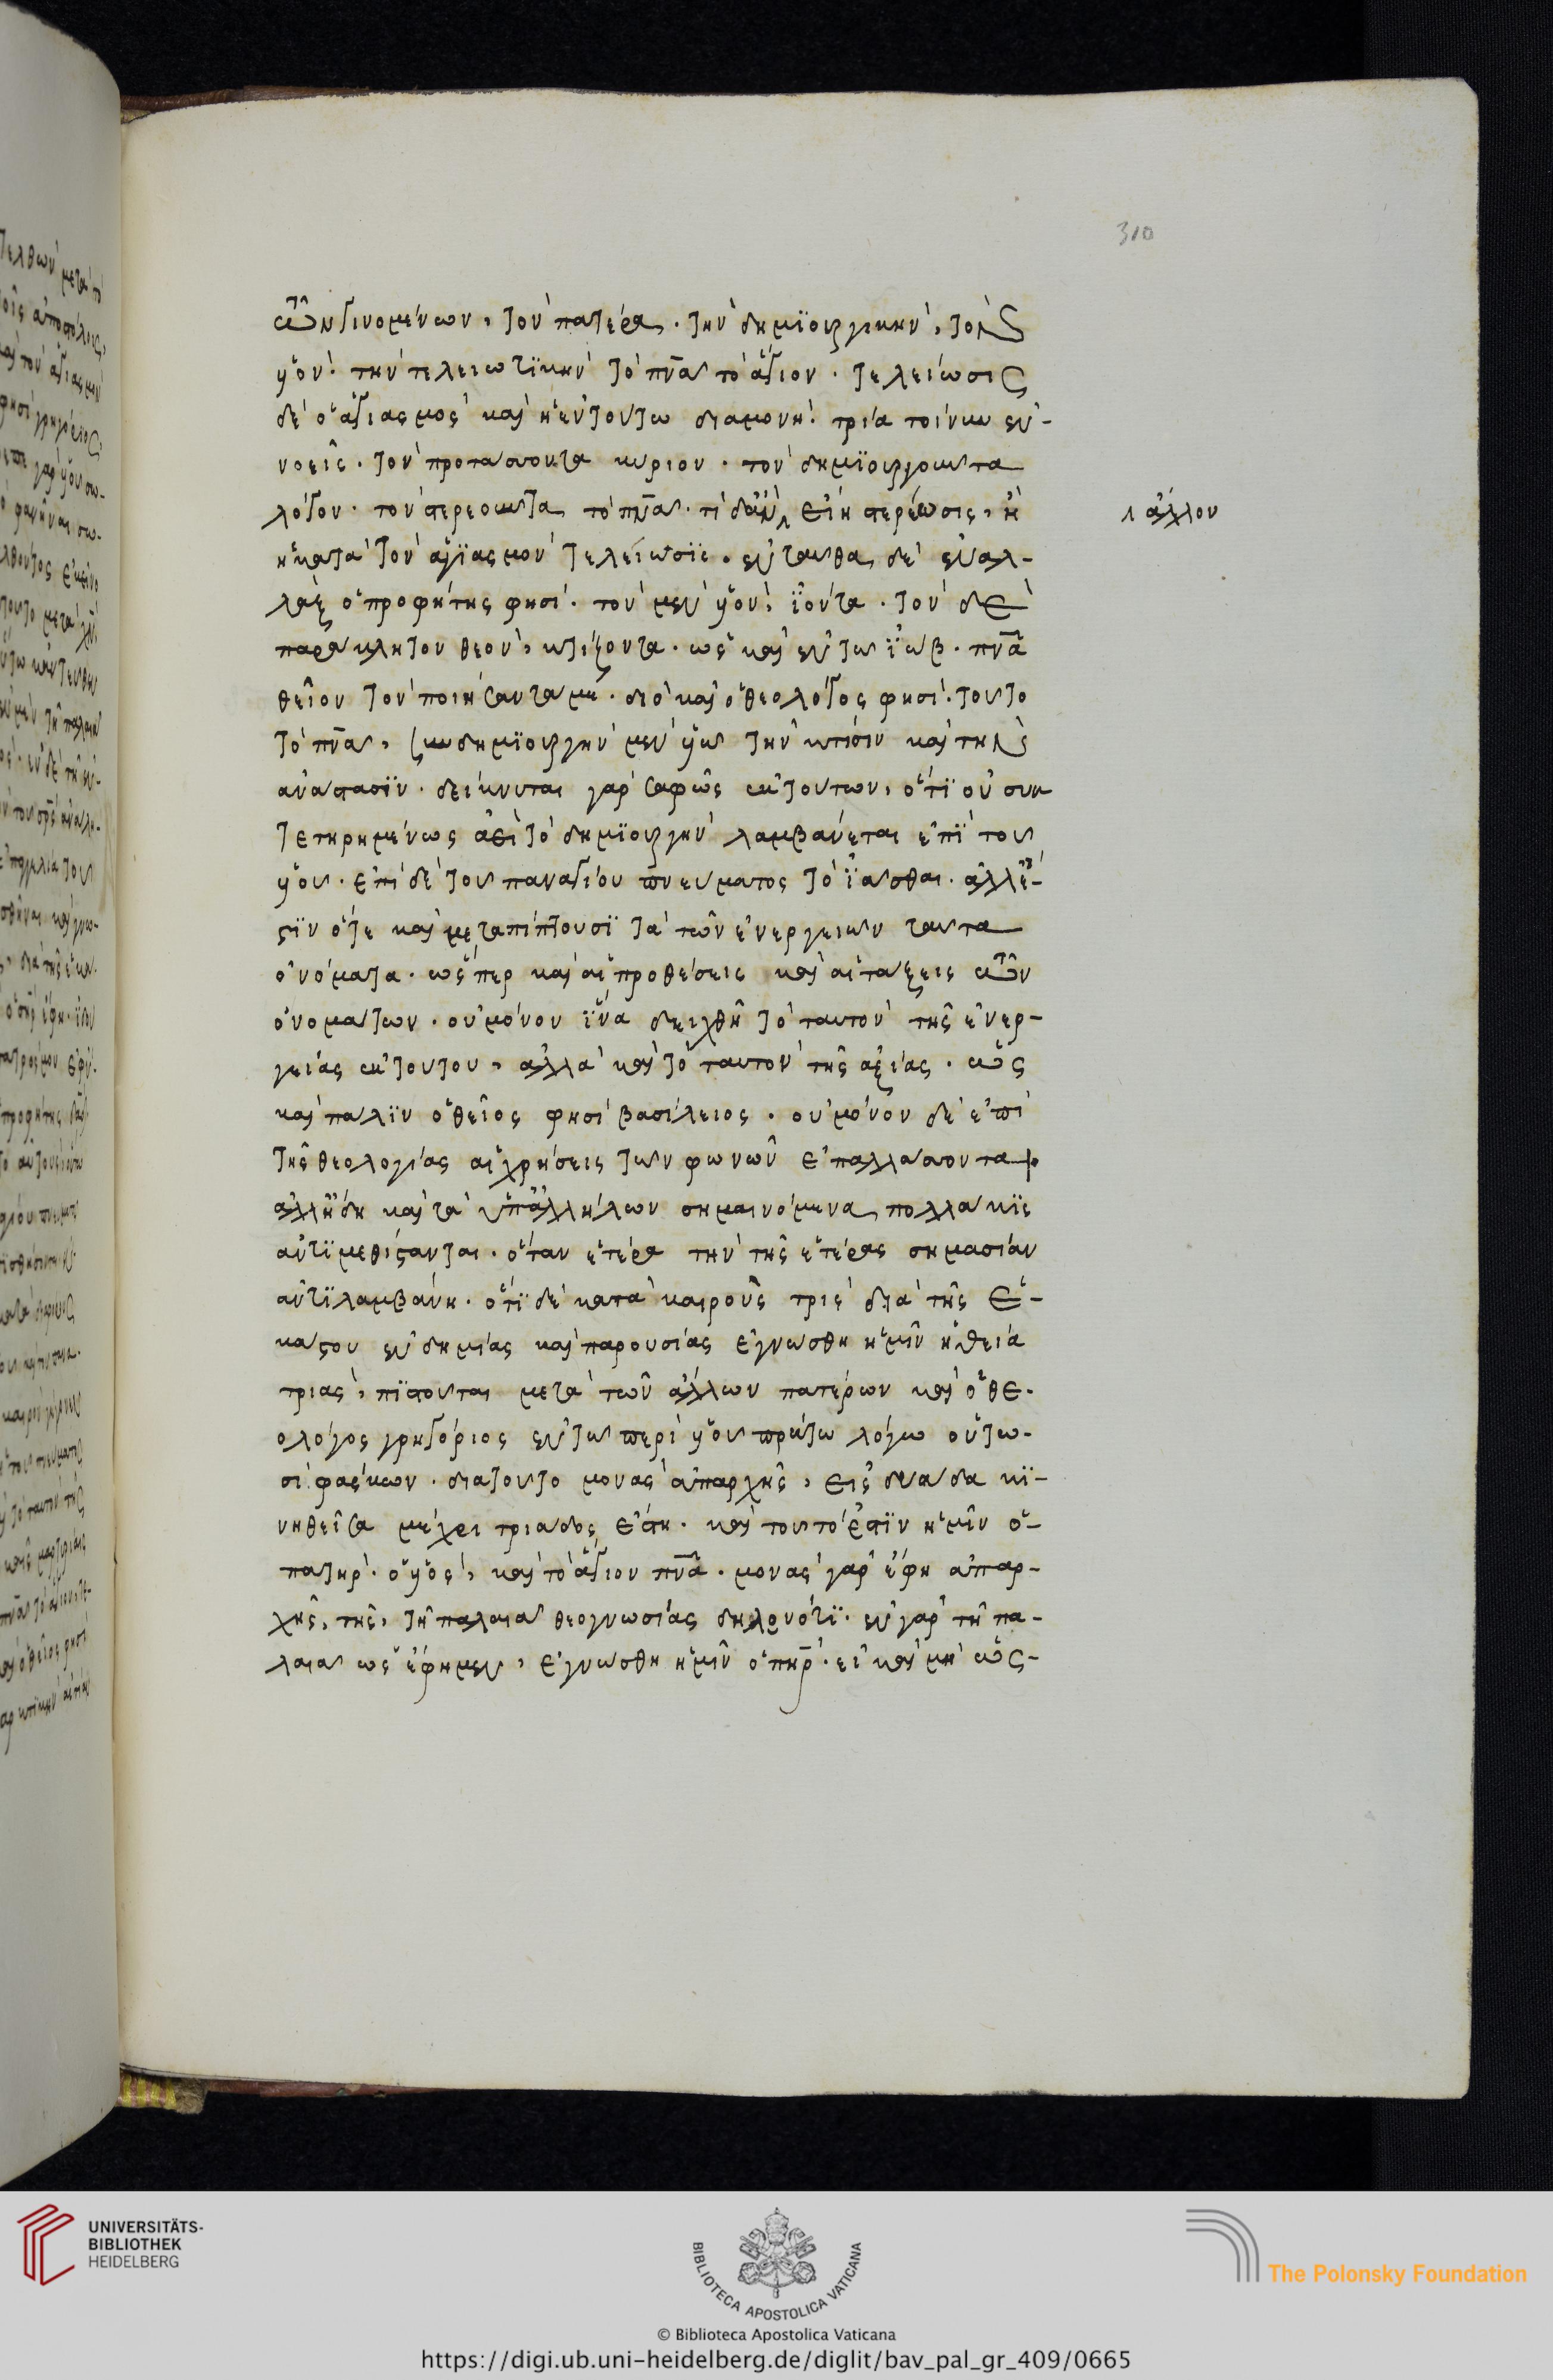 310
τῶν γινομένων, τὸν πατέρα. τὴν δημϊουργικὴν, τὸν
υἱόν· τὴν τελειωτϊκὴν τὸ πνα τὸ ἅγιον. τελείωσις
δὲ ὁ ἁγιασμὸς καὶ ἡ ἐν τούτω διαμονή· τρία τοίνυν ἐν-
νοεῖς. τὸν προτάσσοντα κύριον. τὸν δημϊουργοῦντα
λόγον. τὸν στερεοῦντα τὸ πνα. τί δ' ἂν εἴη στερέωσις, ἢ
ἄλλον
ἡ κατὰ τὸν ἁγϊασμὸν τελείωσϊς. ἐνταῦθα δὲ ἐναλ-
λὰξ ὁ προφήτης φησί. τὸν μὲν υἱὸν, ϊόντα. τὸν δὲ
παράκλητον θεὸν, κτίζοντα. ὡς καὶ ἐν τῶ ϊὼβ. πνα
θεῖον τὸν ποιήσαντα με. διὸ καὶ ὁ θεολόγος φησί. τοῦτο
τὸ πνα, συνδημϊουργεῖν μὲν υἱῶ τὴν κτίσιν καὶ τὴν
ἀνάστασϊν. δείκνυται γὰρ σαφῶς ἐκ τούτων, ὅτϊ οὐ συν
τετηρημένως ἀεὶ τὸ δημϊουργεῖν λαμβάνεται ἐπϊ τοῦ
υἱοῦ. ἐπὶ δὲ τοῦ παναγίου πνεύματος τὸ ϊᾶσθαι. ἀλλ' ἔ-
στϊν ὅτε καὶ μεταπίπτουσϊ τὰ τῶν ἐνεργειῶν ταῦτα
ὀνόματα. ὥσπερ καὶ αἱ προθέσεις καὶ αἱ τάξεις τῶν
ὀνομάτων. οὐ μόνον ϊνα δειχθῆ τὸ ταυτὸν τῆς ἐνερ-
γείας ἐκ τούτου, ἀλλὰ καὶ τὸ ταυτὸν τῆς ἀξίας. ὡς
καὶ πάλϊν ὁ θεῖος φησὶ βασίλειος. οὐ μόνον δὲ ἐπὶ
τῆς θεολογίας αἱ χρήσεις τῶν φωνῶν ἐπαλλάσσονται
ἀλλ' ἤδη καὶ τὰ ὑπ' ἀλλήλων σημαινόμενα πολλάκϊς
ἀντϊμεθίστανται. ὅταν ἑτέρα τὴν τῆς ἑτέρας σημασίαν
ἀντϊλαμβάνη. ὅτϊ δὲ κατὰ καιροὺς τρὶς διὰ τῆς ἑ-
κάστου ἐνδημίας καὶ παρουσίας ἐγνώσθη ἡμῖν ἡ θεία
τριὰς, πϊστοῦται μετὰ τῶν ἄλλων πατέρων καὶ ὁ θε-
ολόγος γρηγόριος ἐν τῶ περὶ υἱοῦ πρώτω λόγω οὕτω-
σὶ φάσκων. διὰ τοῦτο μονὰς ἀπ' ἀρχῆς, εἰς δυάδα κϊ-
νηθεῖσα μέχρι τριάδος ἔστη. καὶ τοῦτό ἐστϊν ἡμῖν ὁ-
πατὴρ. ὁ υἱὸς, καὶ τὸ ἅγιον πνα. μονὰς γὰρ ἔφη ἀπ' αρ-
χῆς, τῆς, τῆ παλαιᾶ θεογνωσίας δηλονότϊ. ἐν γὰρ τῆ πα-
λαιᾶ ὡς ἔφημεν, ἐγνώσθη ἡμῖν ὁ πηρ. εἰ καὶ μὴ ὡς-
UNIVERSITÄTS-
BIBLIOTHEK
HEIDELBERG
BIBLIOTECA APOSTOLICA VATICANA
The Polonsky Foundation
© Biblioteca Apostolica Vaticana
https://digi.ub.uni-heidelberg.de/diglit/bav_pal_gr_409/0665